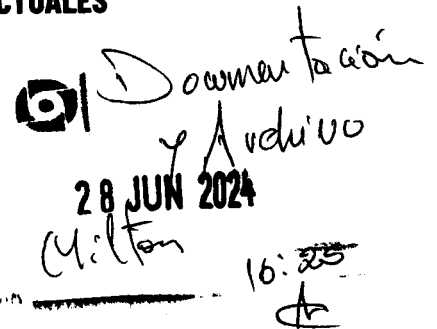 CTUALES
Documentación
y Archivo
28 JUN 2024
Milton
16:25